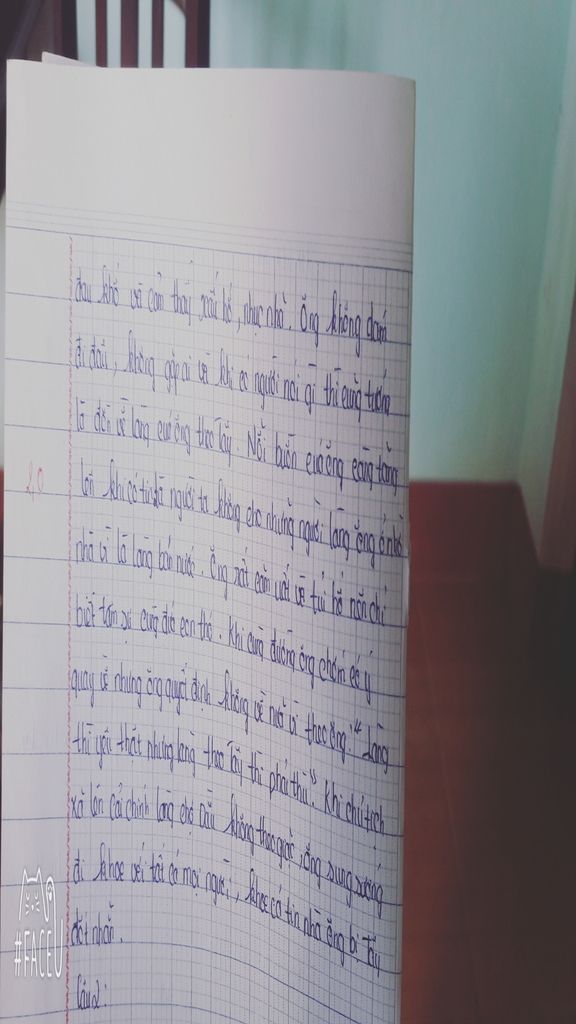 đau khổ và cảm thấy xấu hổ, nhục nhã. Ông không dám
đi đâu, không gặp ai và khi có người nói gì thì cũng tưởng
là đến về làng của ông theo Tây. Nỗi buồn của ông càng tăng
lên khi có tin là người ta không cho những người làng ông ở nhờ
nhà vì là làng bán nước. Ông rất căm uất và tủi hổ nên chỉ
biết tâm sự cùng đứa con thơ. Khi cùng đường ông chớm có ý
quay về nhưng ông quyết định không về nữa vì theo ông: "Làng
thì yêu thật nhưng làng theo Tây thì phải thù". Khi chủ tịch
xã lên cải chính làng chợ Dầu không theo giặc, ông sung sướng
đi khoe với tất cả mọi người, khoe cả tin nhà ông bị Tây
đốt nhẵn.
Câu 2:
2,0
#FACEU